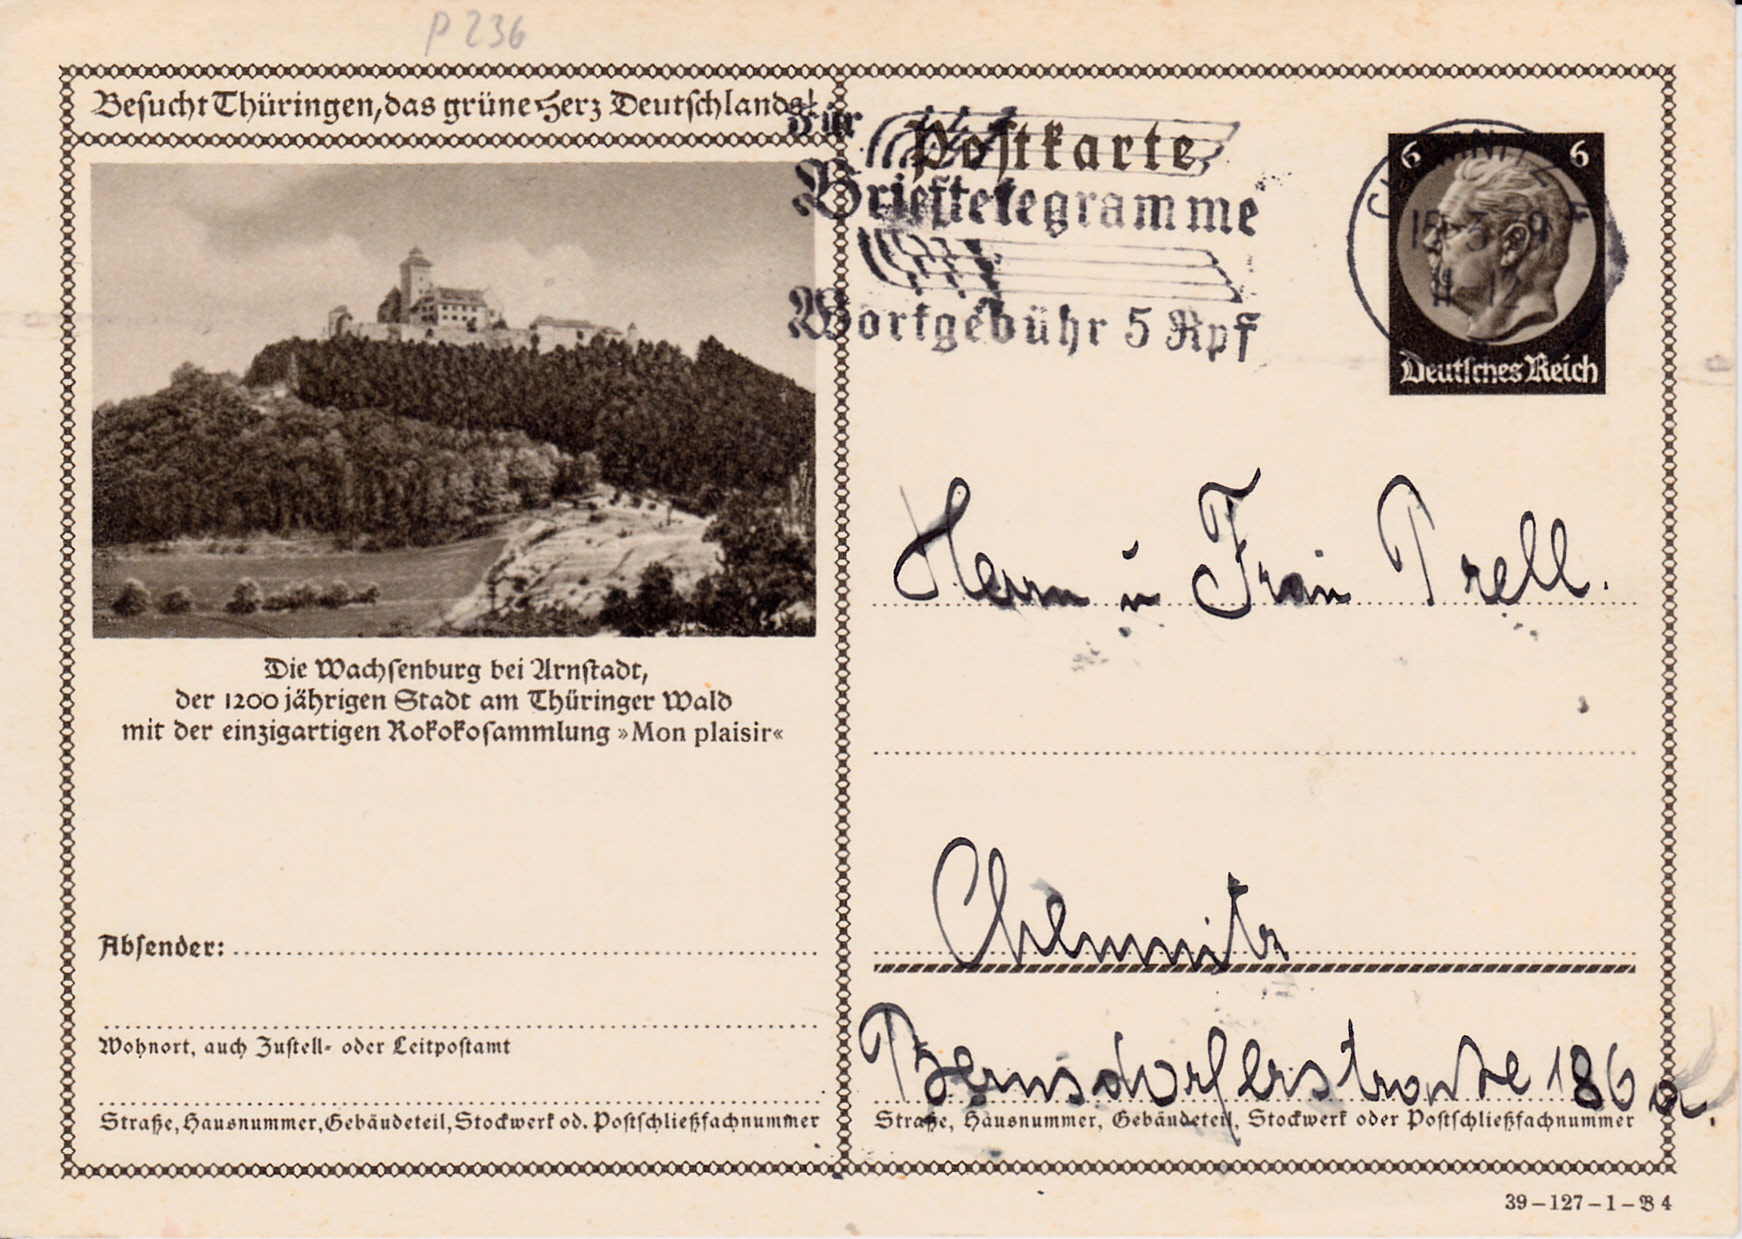 P 236
Besucht Thüringen, das grüne Herz Deutschlands!
Die Wachsenburg bei Arnstadt,
der 1200 jährigen Stadt am Thüringer Wald
mit der einzigartigen Rokokosammlung »Mon plaisir«
Absender:
Wohnort, auch Zustell- oder Leitpostamt
Straße, Hausnummer, Gebäudeteil, Stockwerk od. Postschließfachnummer
Postkarte
Für
Brieftelegramme
Wortgebühr 5 Rpf
6 6
CHEMNITZ 4
3.39
11-12
Deutsches Reich
Herrn u Frau Prell.
Chemnitz
Bernsdorferstrasse 186 a.
Straße, Hausnummer, Gebäudeteil, Stockwerk oder Postschließfachnummer
39-127-1-B 4